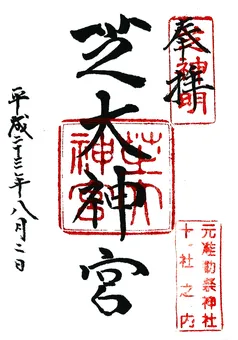 奉拝
神明
芝大神宮
芝大神宮
平成二十三年八月二日
元准勅祭神社
十社之内